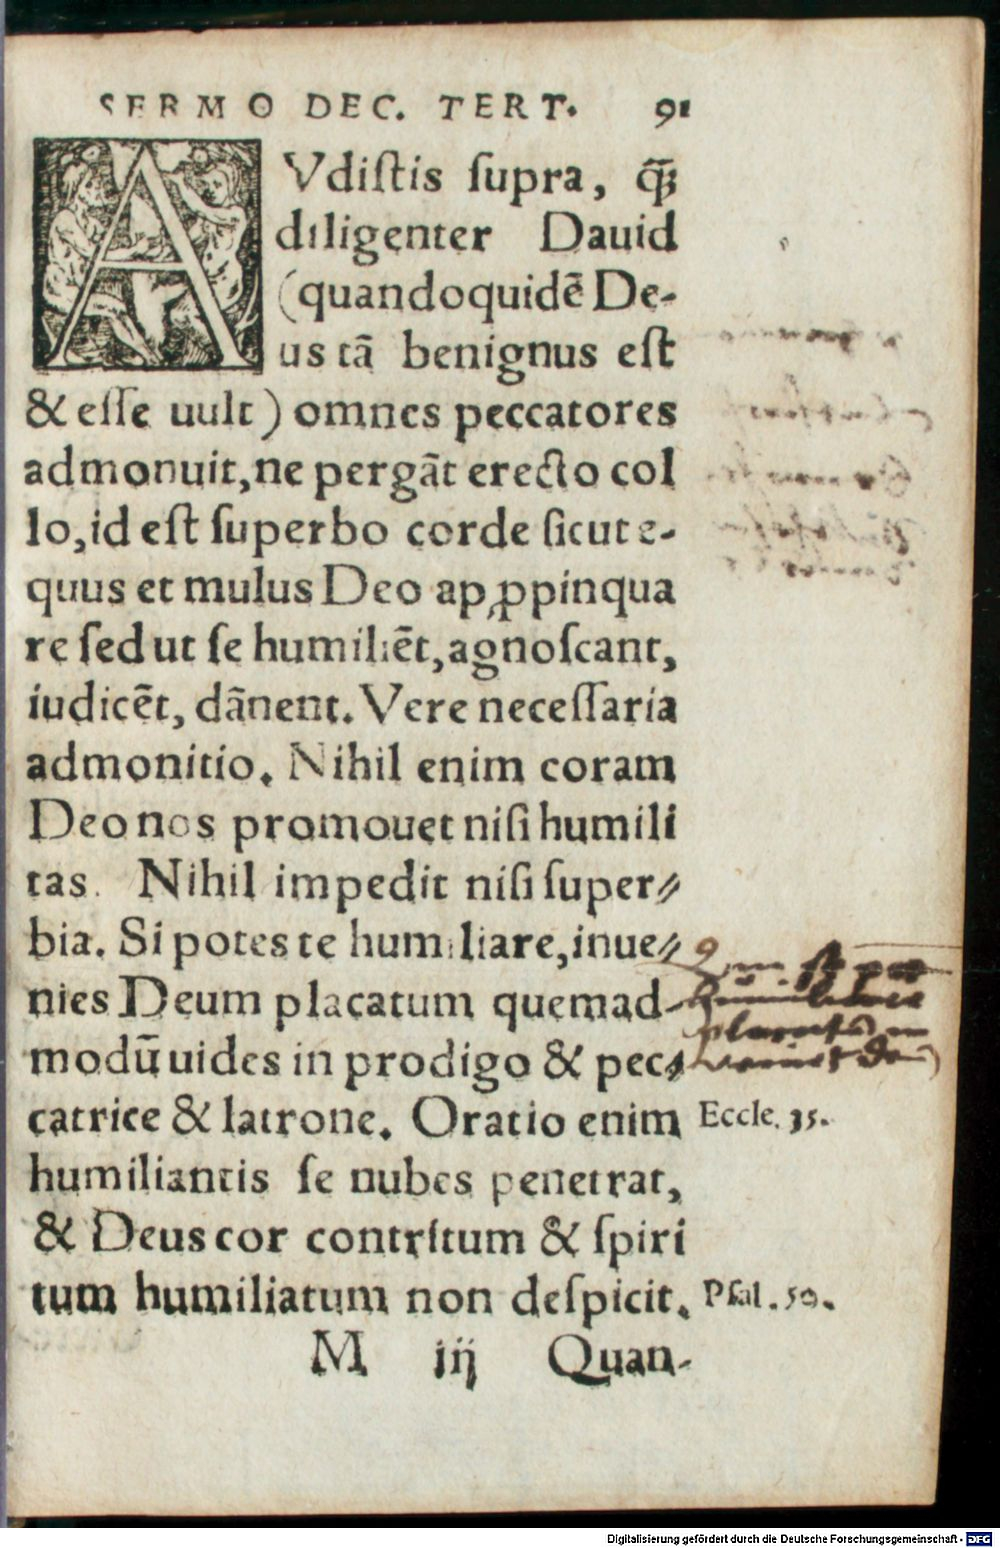 SERMO DEC. TERT. 91
AVdiſtis ſupra, q̃ꝫ
diligenter Dauid
(quandoquidē De-
us tā benignus eſt
& eſſe uult) omnes peccatores
admonuit, ne pergāt erecto col
lo, id eſt ſuperbo corde ſicut e-
quus et mulus Deo apꝓpinqua
re ſed ut ſe humiliēt, agnoſcant,
iudicēt, dānent. Vere neceſſaria
admonitio. Nihil enim coram
Deo nos promouet niſi humili
tas. Nihil impedit niſi ſuper⸗
bia. Si potes te humiliare, inue⸗
nies Deum placatum quemad-
modū uides in prodigo & pec⸗
catrice & latrone. Oratio enim
Eccle. 35.
humiliantis ſe nubes penetrat,
& Deus cor contritum & ſpiri
tum humiliatum non deſpicit.
Pſal. 50.
M iij Quan-
Digitalisierung gefördert durch die Deutsche Forschungsgemeinschaft - DFG